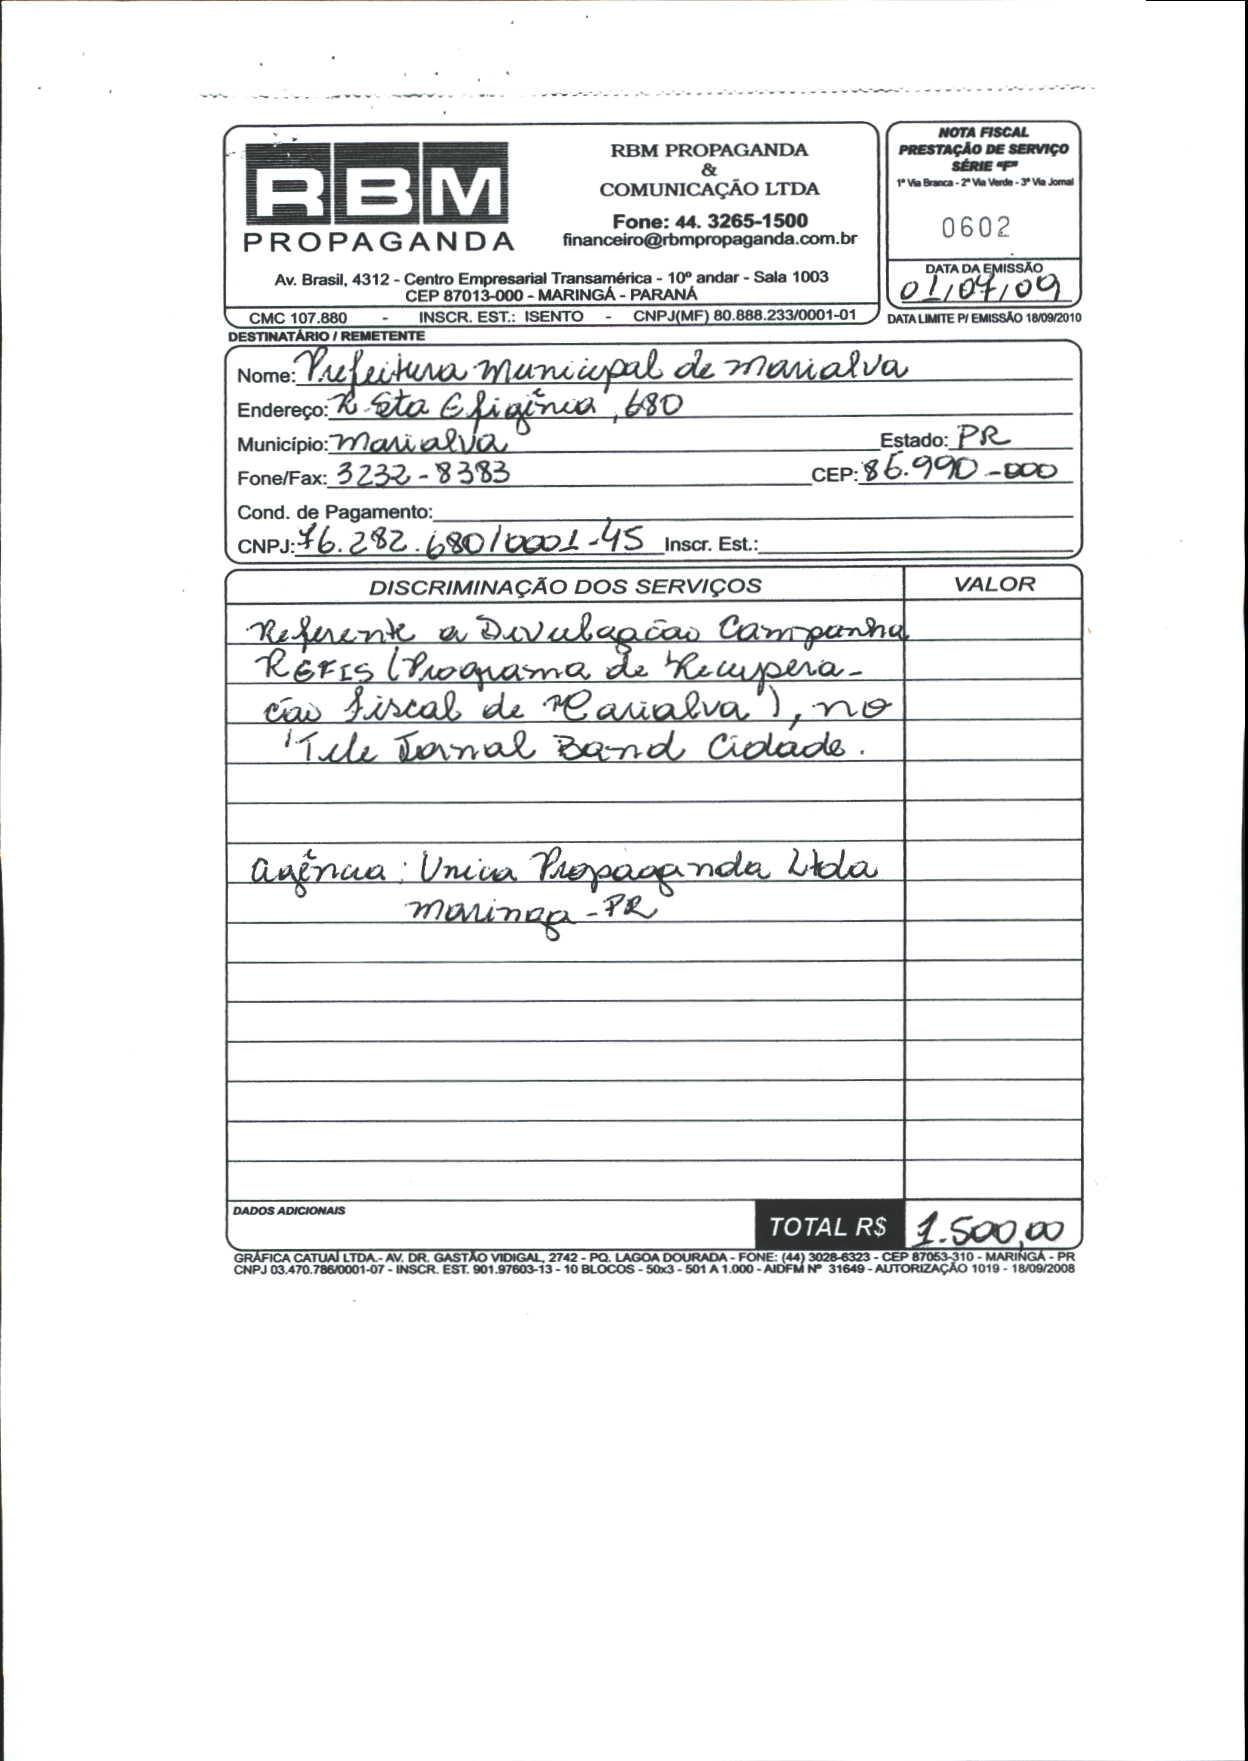 RBM
PROPAGANDA
RBM PROPAGANDA
&
COMUNICAÇÃO LTDA
Fone: 44. 3265-1500
financeiro@rbmpropaganda.com.br
Av. Brasil, 4312 - Centro Empresarial Transamérica - 10º andar - Sala 1003
CEP 87013-000 - MARINGÁ - PARANÁ
CMC 107.880 - INSCR. EST.: ISENTO - CNPJ(MF) 80.888.233/0001-01
NOTA FISCAL
PRESTAÇÃO DE SERVIÇO
SÉRIE "F"
1ª Via Branca - 2ª Via Verde - 3ª Via Jornal
0602
DATA DA EMISSÃO
01/07/09
DATA LIMITE P/ EMISSÃO 18/09/2010
DESTINATÁRIO / REMETENTE
Nome: Prefeitura Municipal de Marialva
Endereço: R. Sta Efigênia, 680
Município: Marialva Estado: PR
Fone/Fax: 3232-8383 CEP: 86.990-000
Cond. de Pagamento:
CNPJ: 76.282.680/0001-45 Inscr. Est.:
DISCRIMINAÇÃO DOS SERVIÇOS VALOR
Referente a Divulgacão Campanha
REFIS (Programa de Recupera-
cão Fiscal de Marialva), no
Tele Jornal Band Cidade.
Agência: Unica Propaganda Ltda
Maringa - PR
DADOS ADICIONAIS
TOTAL R$ 1.500,00
GRÁFICA CATUAÍ LTDA.- AV. DR. GASTÃO VIDIGAL, 2742 - PQ. LAGOA DOURADA - FONE: (44) 3028-6323 - CEP 87053-310 - MARINGÁ - PR
CNPJ 03.470.786/0001-07 - INSCR. EST. 901.97603-13 - 10 BLOCOS - 50x3 - 501 A 1.000 - AIDFM Nº 31649 - AUTORIZAÇÃO 1019 - 18/09/2008